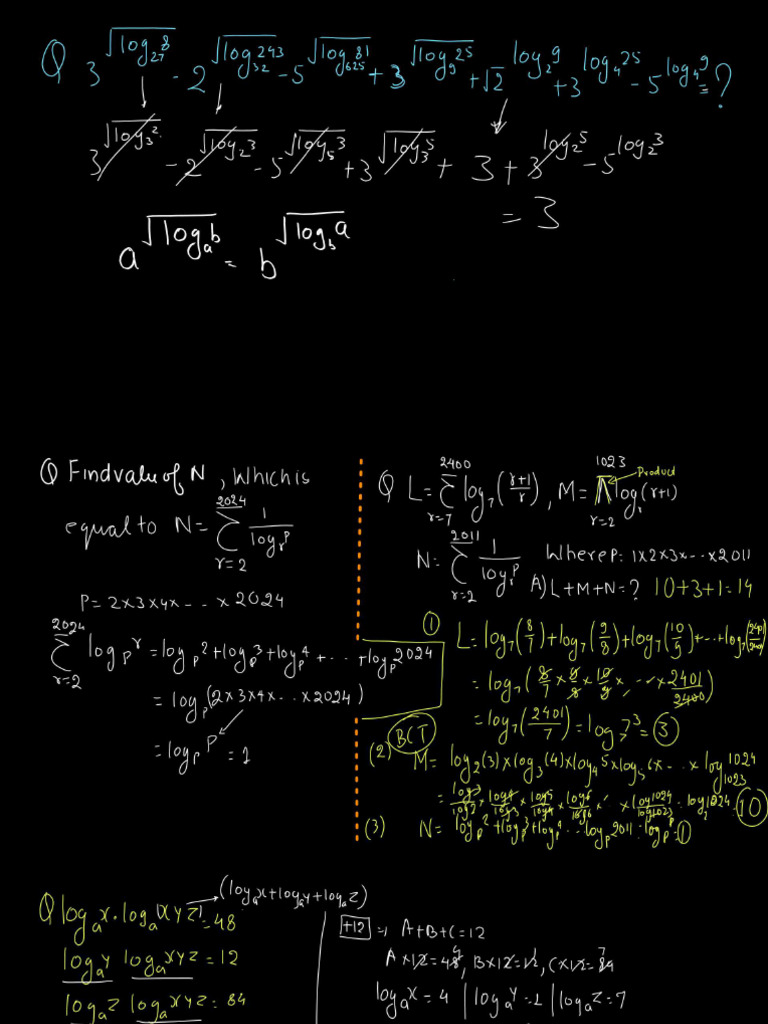 Q 3^√(log₂₇8) - 2^√(log₃₂243) - 5^√(log₆₂₅81) + 3^√(log₉25) + √2^(log₂9) + 3^(log₄25) - 5^(log₄9) = ?
3^√(log₃2) - 2^√(log₂3) - 5^√(log₅3) + 3^√(log₃5) + 3 + 3^(log₂5) - 5^(log₂3)
= 3
a^√(logₐb) = b^√(log_b a)
Q Find value of N, Which is
equal to N = Σ_{r=2}^{2024} 1/(log_r P)
P = 2×3×4×--- × 2024
Σ_{r=2}^{2024} log_P r = log_P 2 + log_P 3 + log_P 4 + ... + log_P 2024
= log_P (2×3×4×... ×2024)
= log_P P = 1
Q L = Σ_{r=7}^{2400} log₇((r+1)/r), M = Π_{r=2}^{1023} log_r (r+1)
Product
N = Σ_{r=2}^{2011} 1/(log_r P) Where P: 1×2×3×...×2011
A) L+M+N = ? 10+3+1=14
① L = log₇(8/7) + log₇(9/8) + log₇(10/9) + ... + log₇(2401/2400)
= log₇(8/7 × 9/8 × 10/9 × ... × 2401/2400)
= log₇(2401/7) = log₇7³ = ③
BCT
(2) M = log₂(3) × log₃(4) × log₄5 × log₅6 × ... × log₁₀₂₃1024
= log3/log2 × log4/log3 × log5/log4 × log6/log5 × ... × log1024/log1023 = log₂1024 = ⑩
(3) N = log_P 2 + log_P 3 + log_P 4 ... log_P 2011 = log_P P = ①
Q logₐx · logₐ(xyz) = 48
(logₐx + logₐy + logₐz)
logₐy logₐxyz = 12
logₐz logₐxyz = 84
+12 ⇒ A+B+C=12
A×12=48 4, B×12=12 1, C×12=84 7
logₐx = 4 | logₐy = 1 | logₐz = 7